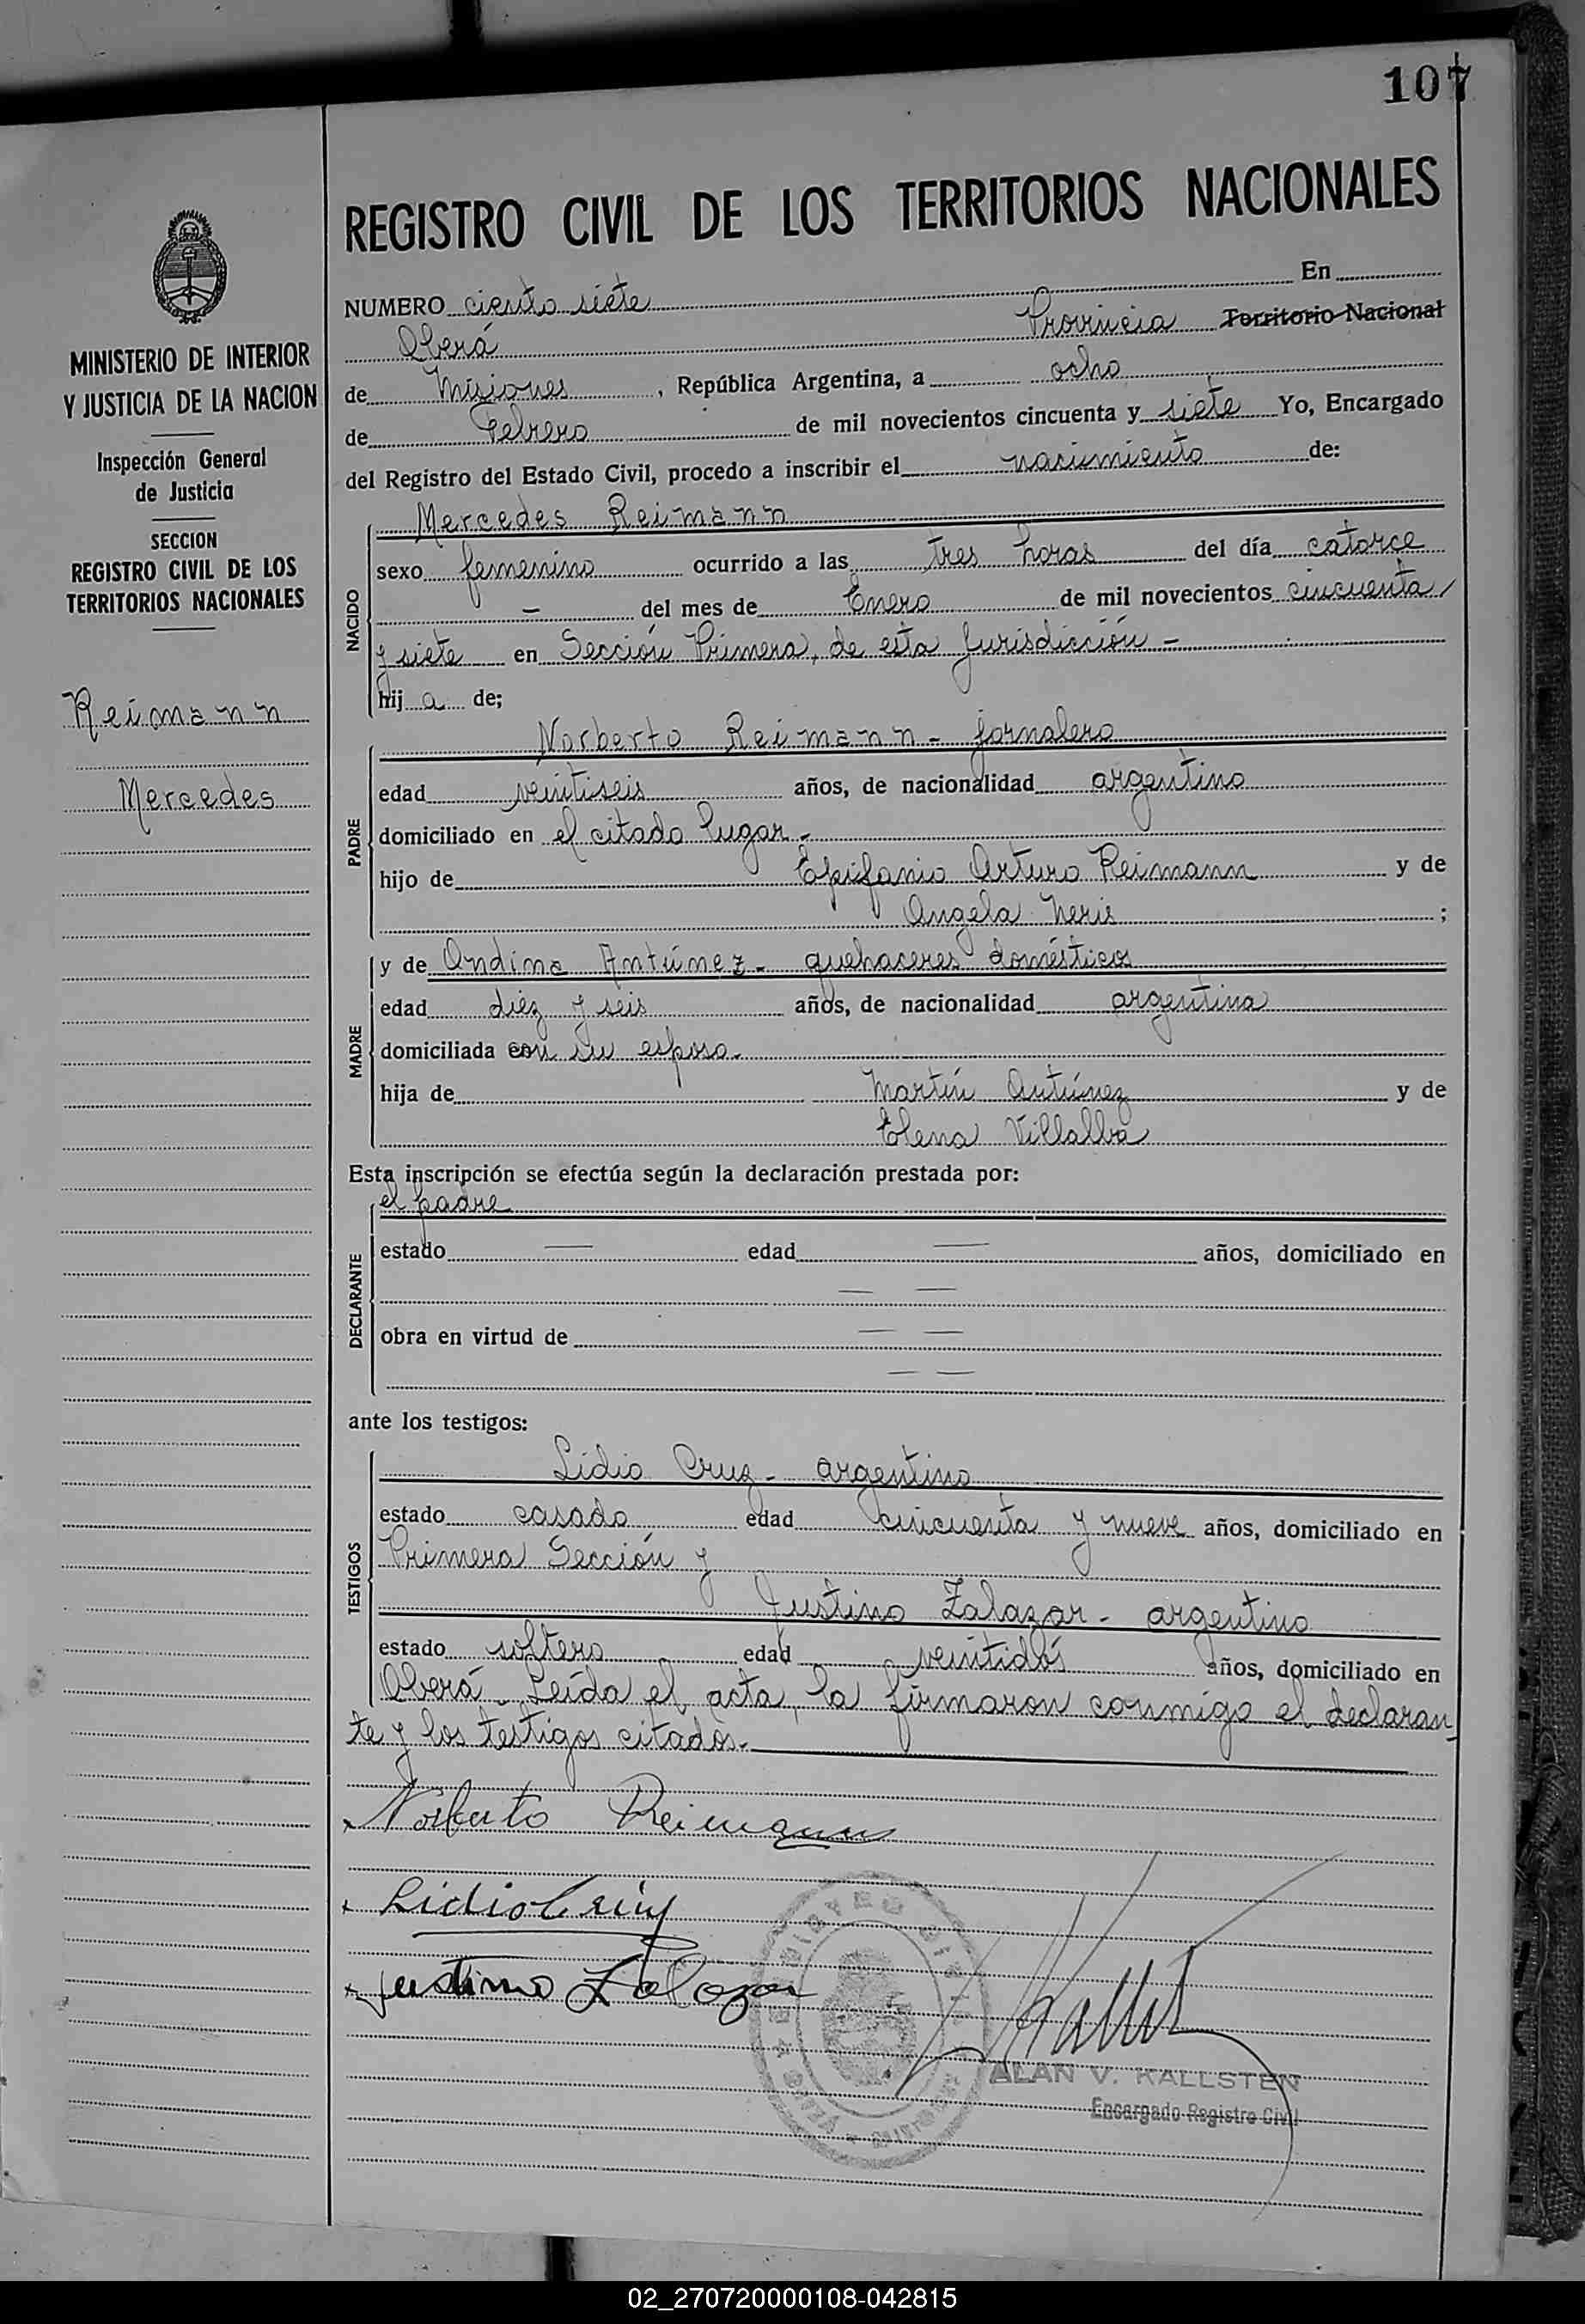 107
REGISTRO CIVIL DE LOS TERRITORIOS NACIONALES
MINISTERIO DE INTERIOR
Y JUSTICIA DE LA NACION
Inspección General
de Justicia
SECCION
REGISTRO CIVIL DE LOS
TERRITORIOS NACIONALES
Reimann
Mercedes
NUMERO ciento siete En
Oberá Provincia Territorio Nacional
de Misiones, República Argentina, a ocho
de Febrero de mil novecientos cincuenta y siete Yo, Encargado
del Registro del Estado Civil, procedo a inscribir el nacimiento de:
NACIDO
Mercedes Reimann
sexo femenino ocurrido a las tres horas del día catorce
— del mes de Enero de mil novecientos cincuenta
y siete en Sección Primera, de esta Jurisdicción -
hij a de;
PADRE
Norberto Reimann - jornalero
edad veintiseis años, de nacionalidad argentino
domiciliado en el citado lugar -
hijo de Epifanio Arturo Reimann y de
Angela Neris ;
MADRE
y de Ondina Antúnez - quehaceres domésticos
edad diez y seis años, de nacionalidad argentina
domiciliada con su esposo.
hija de Martín Antúnez y de
Elena Villalba
Esta inscripción se efectúa según la declaración prestada por:
DECLARANTE
el padre
estado — edad — años, domiciliado en
— —
obra en virtud de — —
— —
ante los testigos:
TESTIGOS
Lidio Cruz - argentino
estado casado edad cincuenta y nueve años, domiciliado en
Primera Sección y
Justino Zalazar - argentino
estado soltero edad veintidós años, domiciliado en
Oberá - Leída el acta, la firmaron conmigo el declaran
te y los testigos citados.-
Norberto Reimann
Lidio Cruz
Justino Zalazar
ALAN V. KALLSTEN
Encargado Registro Civil
02_270720000108-042815